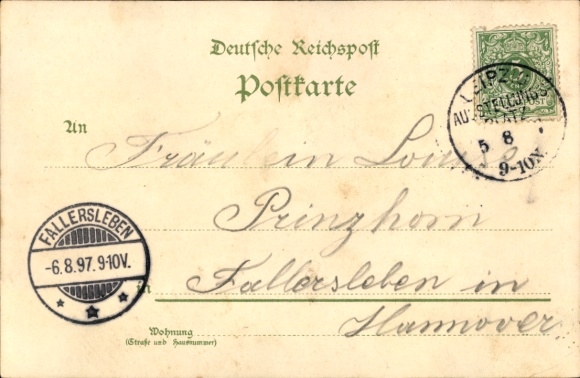 Deutsche Reichspost
Postkarte
LEIPZIG
AUSSTELLUNGS-
PLATZ
5 8
9-10N.
An
Fräulein Louise
Prinzhorn
FALLERSLEBEN
-6.8.97. 9-10V.
in Fallersleben in
Hannover
Wohnung
(Straße und Hausnummer)